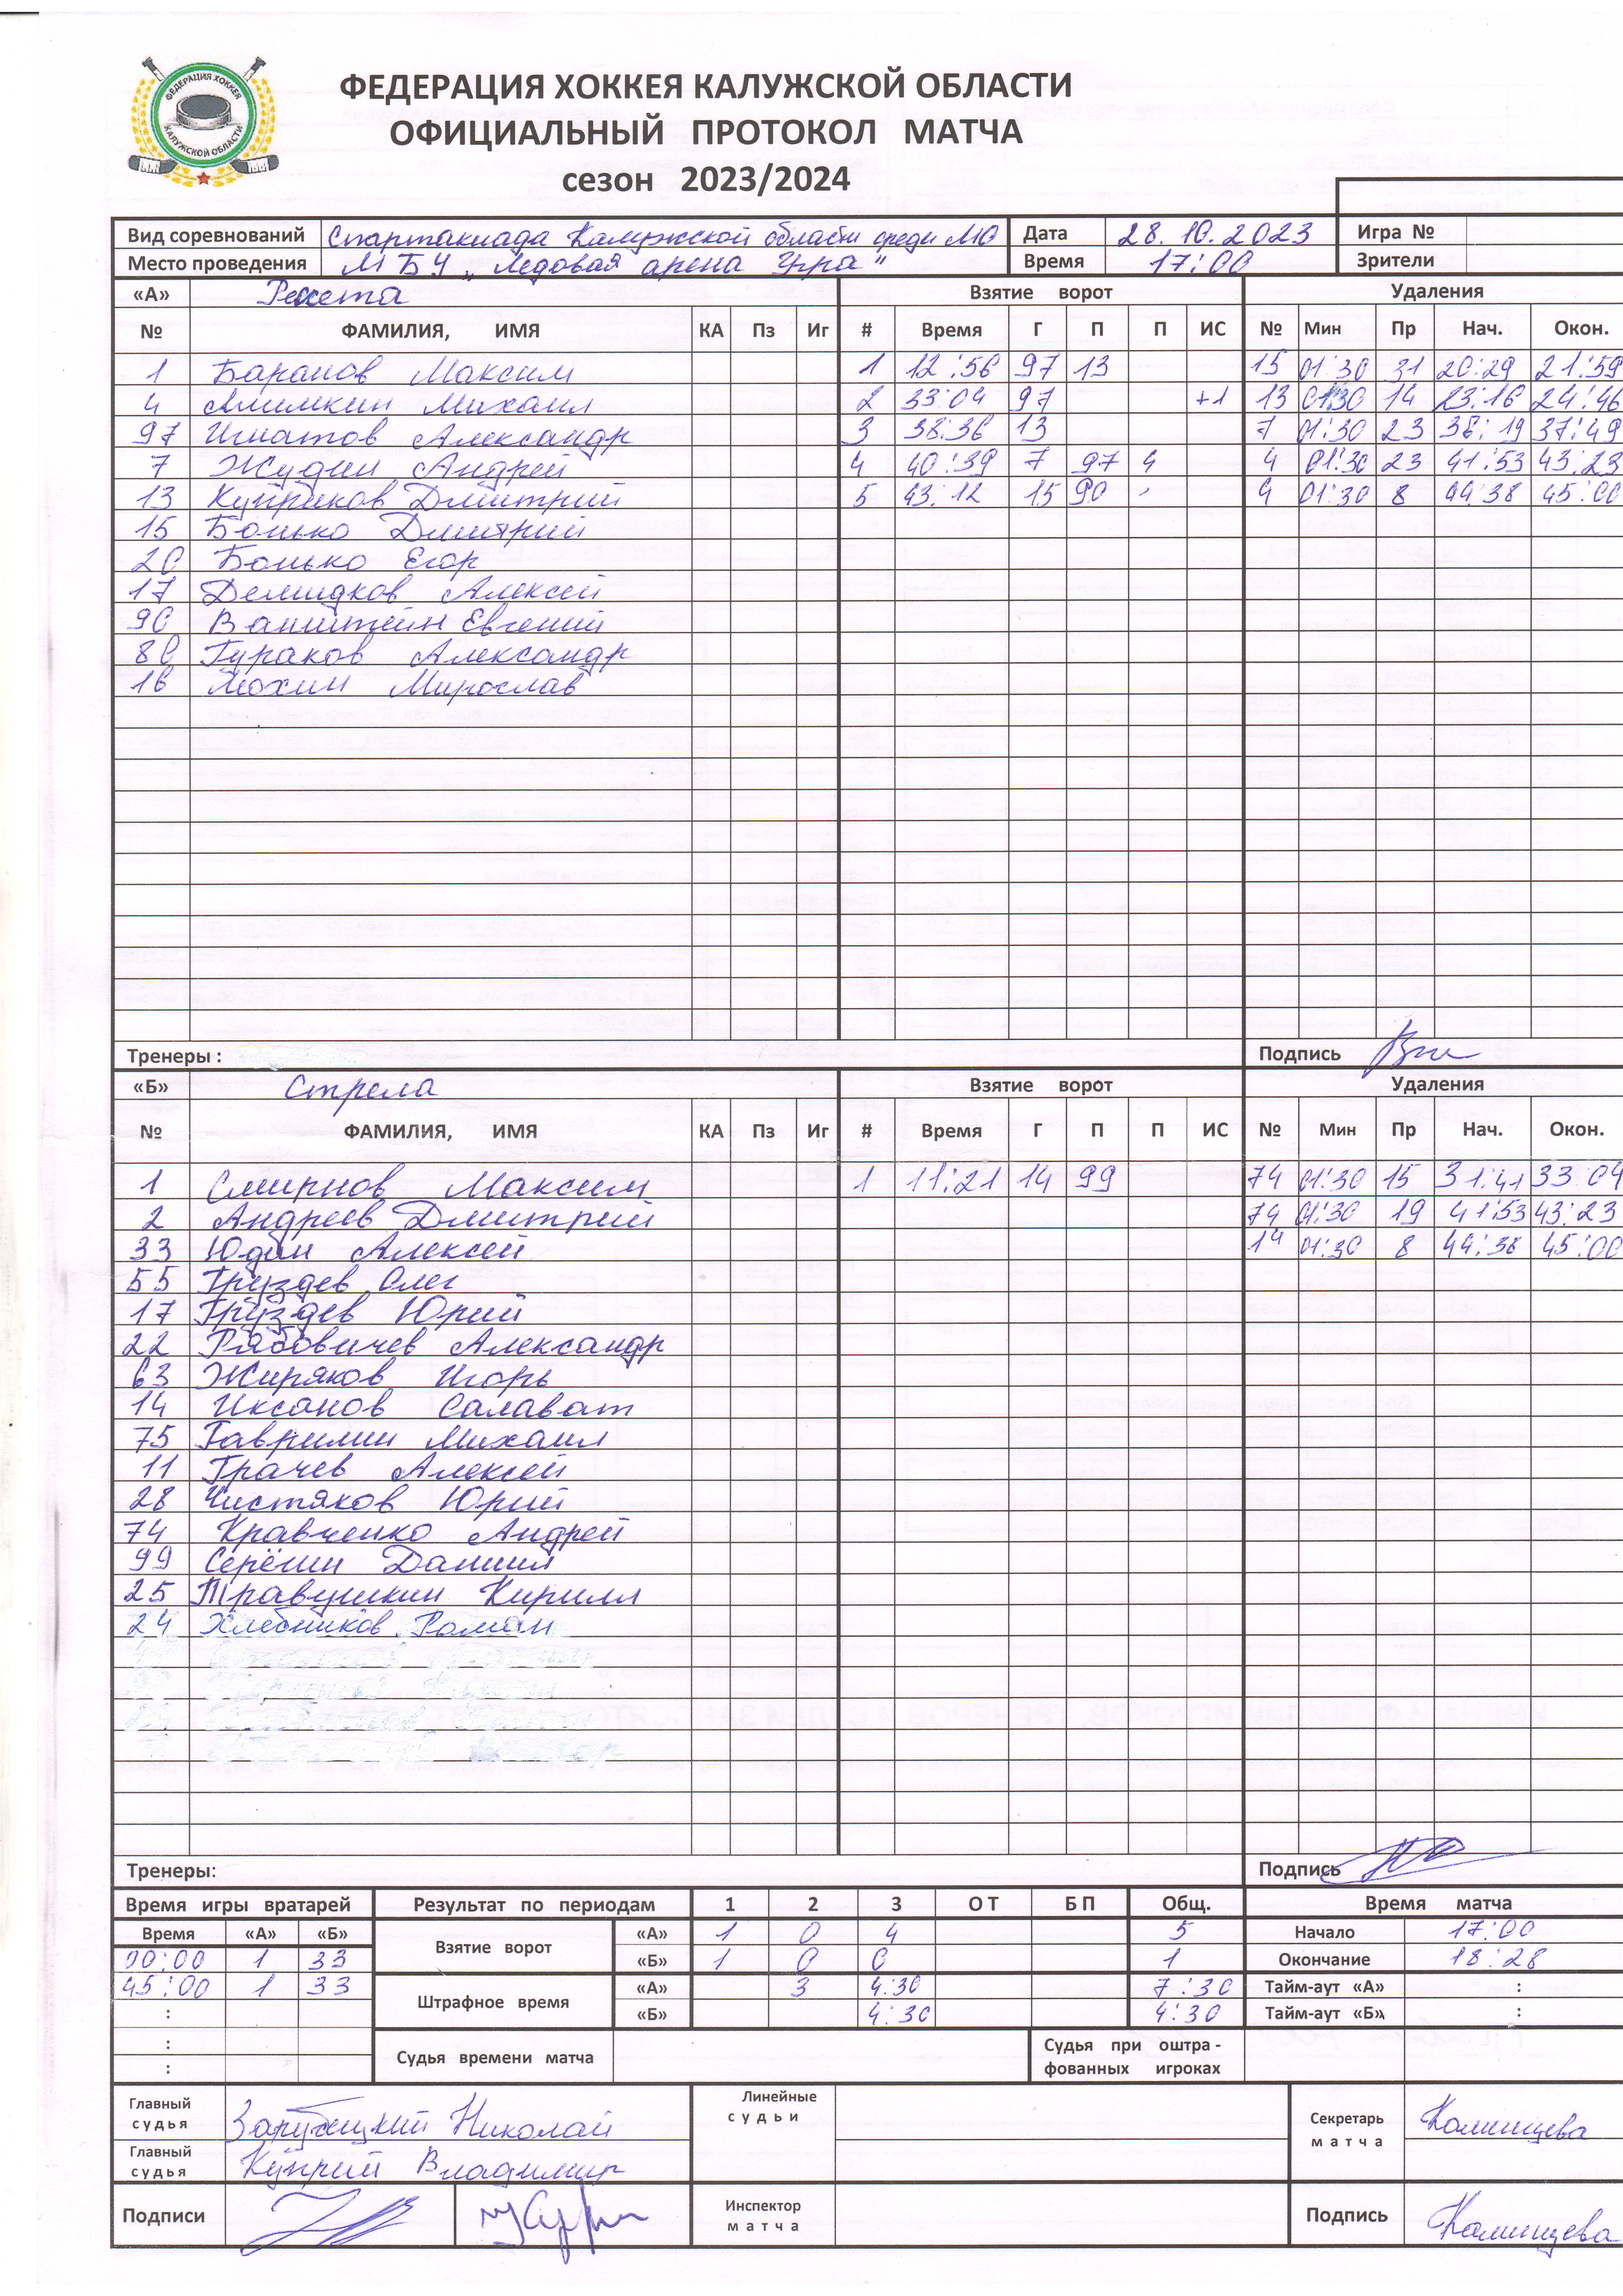 ФЕДЕРАЦИЯ ХОККЕЯ КАЛУЖСКОЙ ОБЛАСТИ
ФЕДЕРАЦИЯ ХОККЕЯ КАЛУЖСКОЙ ОБЛАСТИ
ОФИЦИАЛЬНЫЙ ПРОТОКОЛ МАТЧА
сезон 2023/2024
Вид соревнований Спартакиада Калужской области среди МО Дата 28.10.2023 Игра №
Место проведения МБУ „Ледовая арена Угра" Время 17:00 Зрители
«А» Ракета Взятие ворот Удаления
№ ФАМИЛИЯ, ИМЯ КА Пз Иг # Время Г П П ИС № Мин Пр Нач. Окон.
1 Баранов Максим 1 12:56 97 13 15 01:30 31 20:29 21:59
4 Алимкин Михаил 2 33:04 97 +1 13 01:30 14 23:16 24:46
97 Игнатов Александр 3 38:36 13 7 01:30 23 36:19 37:49
7 Жудин Андрей 4 40:39 7 97 4 4 01:30 23 41:53 43:23
13 Куприков Дмитрий 5 43:12 15 90 4 01:30 8 44:38 45:00
15 Бонько Дмитрий
20 Бонько Егор
17 Демидков Алексей
90 Ванштейн Евгений
80 Гураков Александр
16 Мохин Мирослав
Тренеры : Подпись
«Б» Стрела Взятие ворот Удаления
№ ФАМИЛИЯ, ИМЯ КА Пз Иг # Время Г П П ИС № Мин Пр Нач. Окон.
1 Смирнов Максим 1 11:21 14 99 74 01:30 15 31:41 33:04
2 Андреев Дмитрий 74 01:30 19 41:53 43:23
33 Юдин Алексей 14 01:30 8 44:38 45:00
55 Груздев Олег
17 Груздев Юрий
22 Рябовичев Александр
63 Жиряков Игорь
14 Иксанов Салават
75 Гаврилин Михаил
11 Грачев Алексей
28 Чистяков Юрий
74 Кравченко Андрей
99 Серёгин Даниил
25 Травушкин Кирилл
24 Хлебников Роман
Тренеры: Подпись
Время игры вратарей Результат по периодам 1 2 3 ОТ БП Общ. Время матча
Время «А» «Б» Взятие ворот «А» 1 0 4 5 Начало 17:00
00:00 1 33 «Б» 1 0 0 1 Окончание 18:28
45:00 1 33 Штрафное время «А» 3 4:30 7:30 Тайм-аут «А» :
: «Б» 4:30 4:30 Тайм-аут «Б» :
: Судья времени матча Судья при оштра-
: фованных игроках
Главный судья Зарубицкий Николай Линейные судьи Секретарь матча Калинцева
Главный судья Куприй Владимир
Подписи Инспектор матча Подпись Калинцева